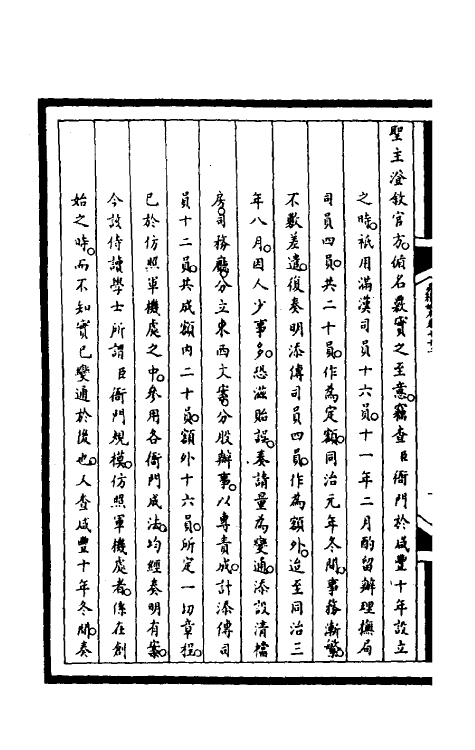 聖主澄敘官方。循名覈實之至意。竊查臣衙門於咸豐十年設立
之時。祇用滿漢司員十六員。十一年二月酌留辦理撫局
司員四員。共二十員。作為定額。同治元年冬間。事務漸繁。
不敷差遣。復奏明添傳司員四員。作為額外。迨至同治三
年八月。因人少事多。恐滋貽誤。奏請量為變通。添設清檔
房。司務廳。分立東西文案。分股辦事。以專責成。計添傳司
員十二員。共成額內二十員。額外十六員。所定一切章程。
已於仿照軍機處之中。參用各衙門成法。均經奏明有案。
今該侍讀學士所謂臣衙門規模。仿照軍機處者。係在創
始之時。而不知實已變通於後也。又查咸豐十年冬間。奏